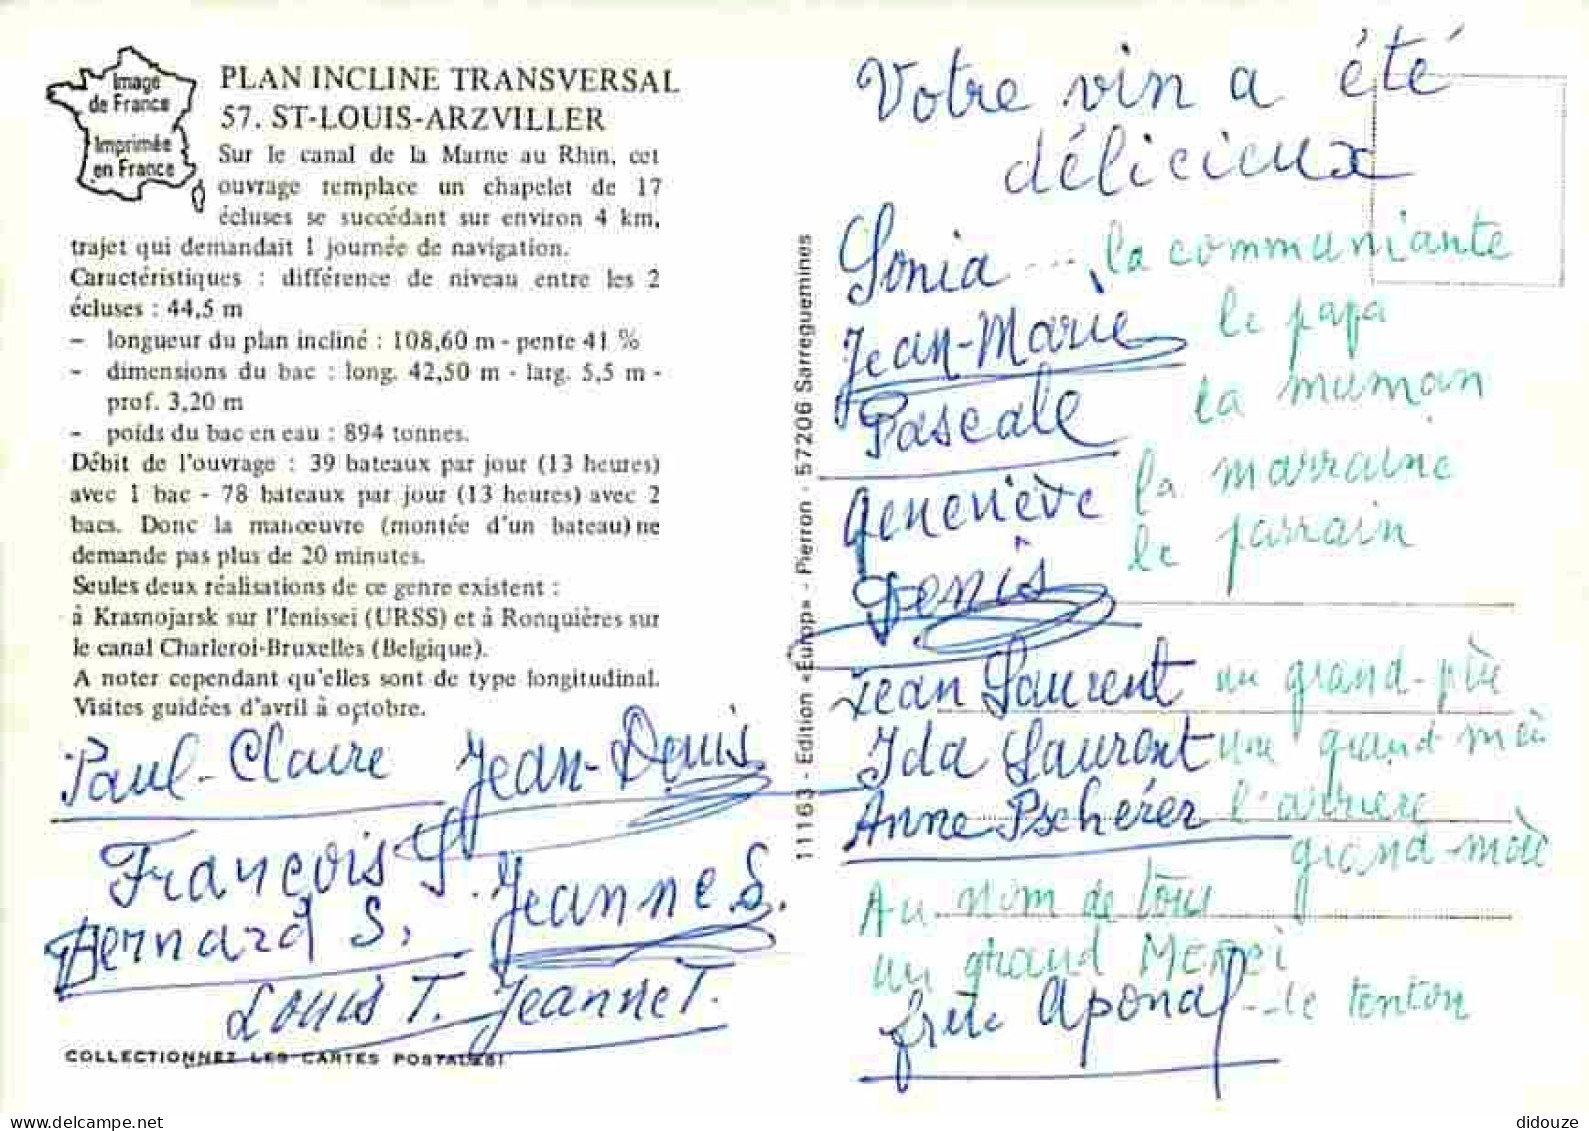 Image
de France
Imprimée
en France
PLAN INCLINE TRANSVERSAL
57. ST-LOUIS-ARZVILLER
Sur le canal de la Marne au Rhin, cet
ouvrage remplace un chapelet de 17
écluses se succédant sur environ 4 km,
trajet qui demandait 1 journée de navigation.
Caractéristiques : différence de niveau entre les 2
écluses : 44,5 m
- longueur du plan incliné : 108,60 m - pente 41 %
- dimensions du bac : long. 42,50 m - larg. 5,5 m -
prof. 3,20 m
- poids du bac en eau : 894 tonnes.
Débit de l'ouvrage : 39 bateaux par jour (13 heures)
avec 1 bac - 78 bateaux par jour (13 heures) avec 2
bacs. Donc la manœuvre (montée d'un bateau) ne
demande pas plus de 20 minutes.
Seules deux réalisations de ce genre existent :
à Krasnojarsk sur l'Ienissei (URSS) et à Ronquières sur
le canal Charleroi-Bruxelles (Belgique).
A noter cependant qu'elles sont de type longitudinal.
Visites guidées d'avril à octobre.
Paul-Claire Jean-Denis
François S. Jeanne S.
Bernard S.
Louis T. Jeanne T.
COLLECTIONNEZ LES CARTES POSTALES!
11163 - Edition «Europ» - Pierron - 57206 Sarreguemines
Votre vin a été
délicieux
Sonia ... la communiante
Jean-Marie le papa
Pascale la maman
Geneviève la marraine
Denis le parrain
Jean Laurent un grand-père
Ida Laurent une grand mère
Anne Pschérer l'arrière
grand-mère
Au nom de tous
un grand Merci
frère Aponal --- le tonton
didouze